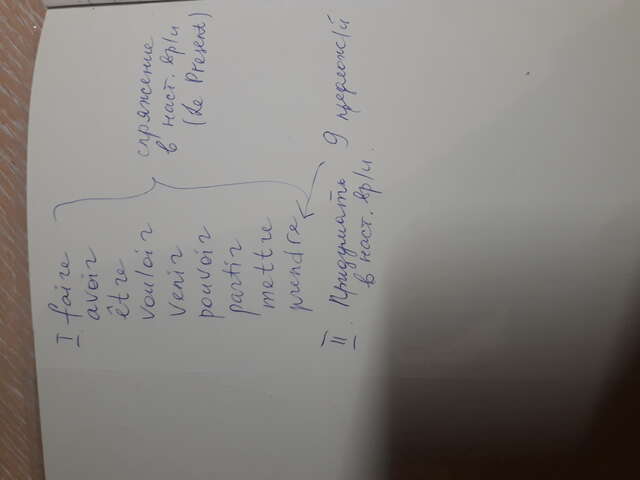 I faire
avoir
être
vouloir
venir
pouvoir
partir
mettre
prendre
спряжение
в наст. вр/и
(Le Present)
II. Придумать 9 предлож/й
в наст. вр/и.